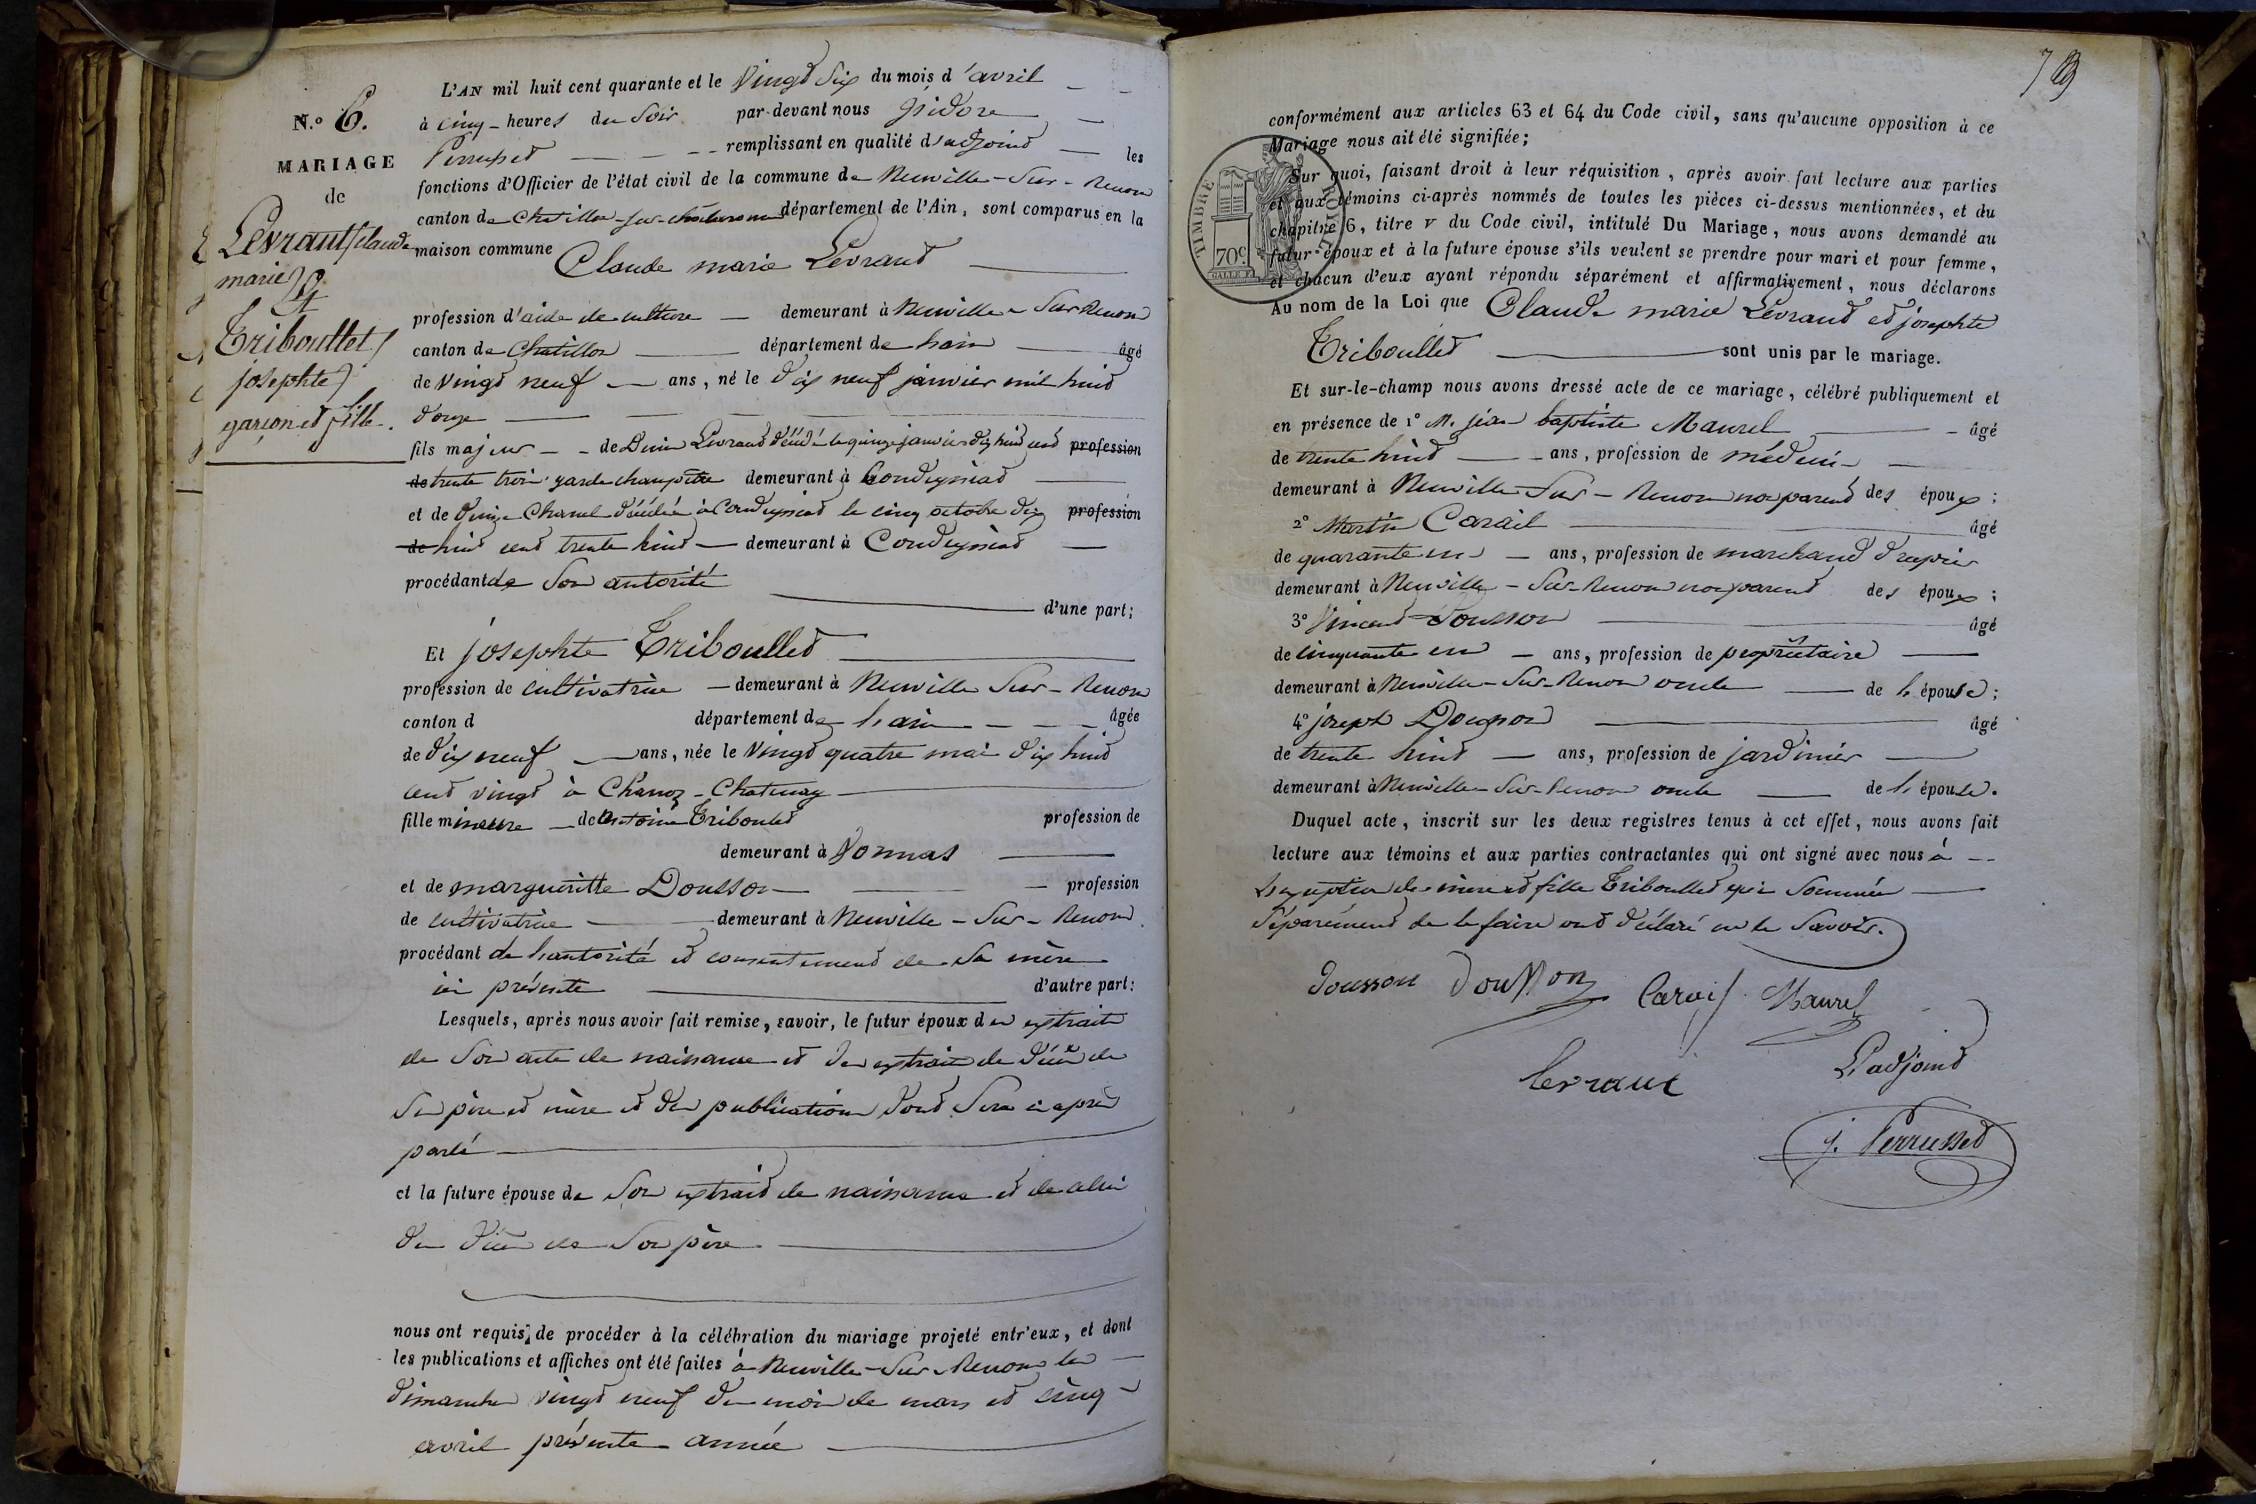 N.o 6.
MARIAGE
de
Levraut (Claude
marie)
et
Triboullet (
josephte)
garçon et fille.
L'AN mil huit cent quarante et le Vingt Six du mois d'avril
à cinq heures du Soir par-devant nous Isidore
Perrusset remplissant en qualité d'adjoint les
fonctions d'Officier de l'état civil de la commune de Neuville-Sur-Renom
canton de Chatillon-sur-chalaronne département de l'Ain, sont comparus en la
maison commune Claude marie Levraut
profession d'aide de culture demeurant à Neuville Sur Renom
canton de Chatillon département de hain âgé
de Vingt neuf ans, né le dix neuf janvier mil huit
d'onze
fils majeur de Denis Levraut décédé le quinze janvier dix huit cent profession
de trente trois garde champêtre demeurant à Condeyssiat
et de Denise Charvel décédée à Condeyssiat le cinq octobre dix profession
de huit cent trente huit demeurant à Condeyssiat
procédant de Son autorité
d'une part;
Et josephte Triboullet
profession de cultivatrice demeurant à Neuville Sur-Renom
canton d département de l'ain âgée
de dix neuf ans, née le Vingt quatre mai dix huit
cent vingt à Chanoz-Chatenay
fille mineure de Antoine Triboulet profession de
demeurant à Vonnas
et de margueritte Dousson profession
de cultivatrice demeurant à Neuville-Sur-Renom
procédant de l'autorité et consentement de Sa mère
ici présente d'autre part:
Lesquels, après nous avoir fait remise, savoir, le futur époux d un extrait
de Son acte de naissance et des extraits de décès de
Ses père et mère et des publications dont Sera ci après
parlé
et la future épouse de Son extrait de naissance et de celui
du décès de Son père
nous ont requis de procéder à la célébration du mariage projeté entr'eux, et dont
les publications et affiches ont été faites à Neuville-Sur-Renom les
dimanches vingt neuf du mois de mars et cinq
avril présente année
conformément aux articles 63 et 64 du Code civil, sans qu'aucune opposition à ce
Mariage nous ait été signifiée;
TIMBRE ROYAL
70c.
Sur quoi, faisant droit à leur réquisition, après avoir fait lecture aux parties
et aux témoins ci-après nommés de toutes les pièces ci-dessus mentionnées, et du
chapitre 6, titre V du Code civil, intitulé Du Mariage, nous avons demandé au
futur époux et à la future épouse s'ils veulent se prendre pour mari et pour femme,
et chacun d'eux ayant répondu séparément et affirmativement, nous déclarons
Au nom de la Loi que Claude marie Levraut et josephte
Triboullet sont unis par le mariage.
Et sur-le-champ nous avons dressé acte de ce mariage, célébré publiquement et
en présence de 1° M. jéan baptiste Maurel âgé
de trente huit ans, profession de médecin
demeurant à Neuville-Sur-Renom non parent des époux;
2° Martin Carail âgé
de quarante un ans, profession de marchand drapier
demeurant à Neuville-Sur-Renom non parent des époux;
3° Vincent Dousson âgé
de cinquante un ans, profession de propriétaire
demeurant à Neuville-Sur-Renom oncle de l'épouse;
4° joseph Dousson âgé
de trente huit ans, profession de jardinier
demeurant à Neuville-Sur-Renom oncle de l'épouse.
Duquel acte, inscrit sur les deux registres tenus à cet effet, nous avons fait
lecture aux témoins et aux parties contractantes qui ont signé avec nous à
l'exception des mère et fille Triboullet qui Sommées
Séparément de le faire ont déclaré ne le Savoir.
dousson dousson Carail Maurel
levraut L'adjoint
j. Perrusset